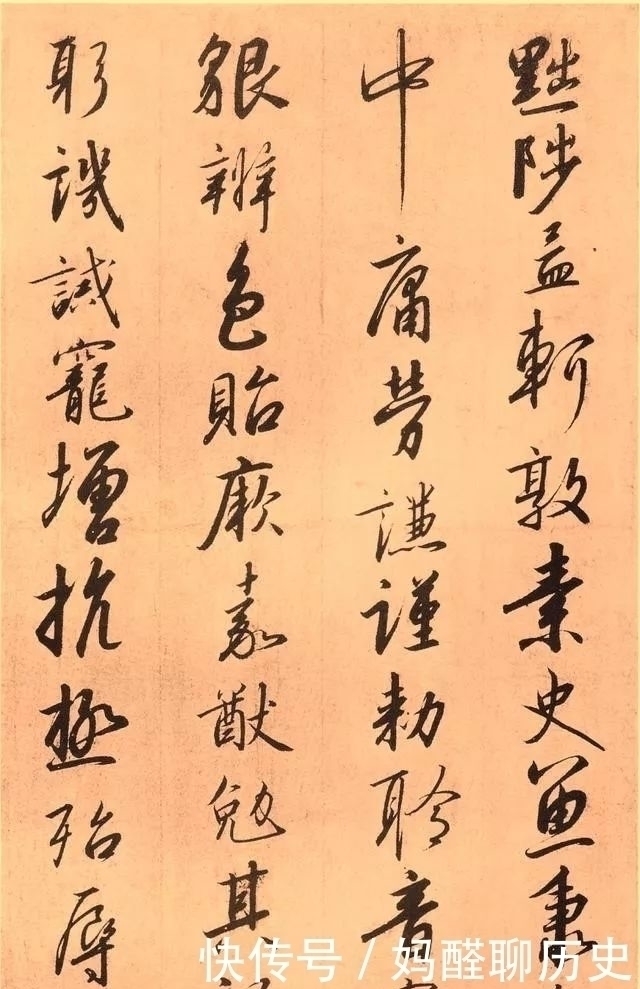 黜陟孟軻敦素史魚秉
中庸勞謙謹勅聆音
貌辨色貽厥嘉猷勉其
躬譏誡寵增抗極殆辱
快传号 / 妈醒聊历史